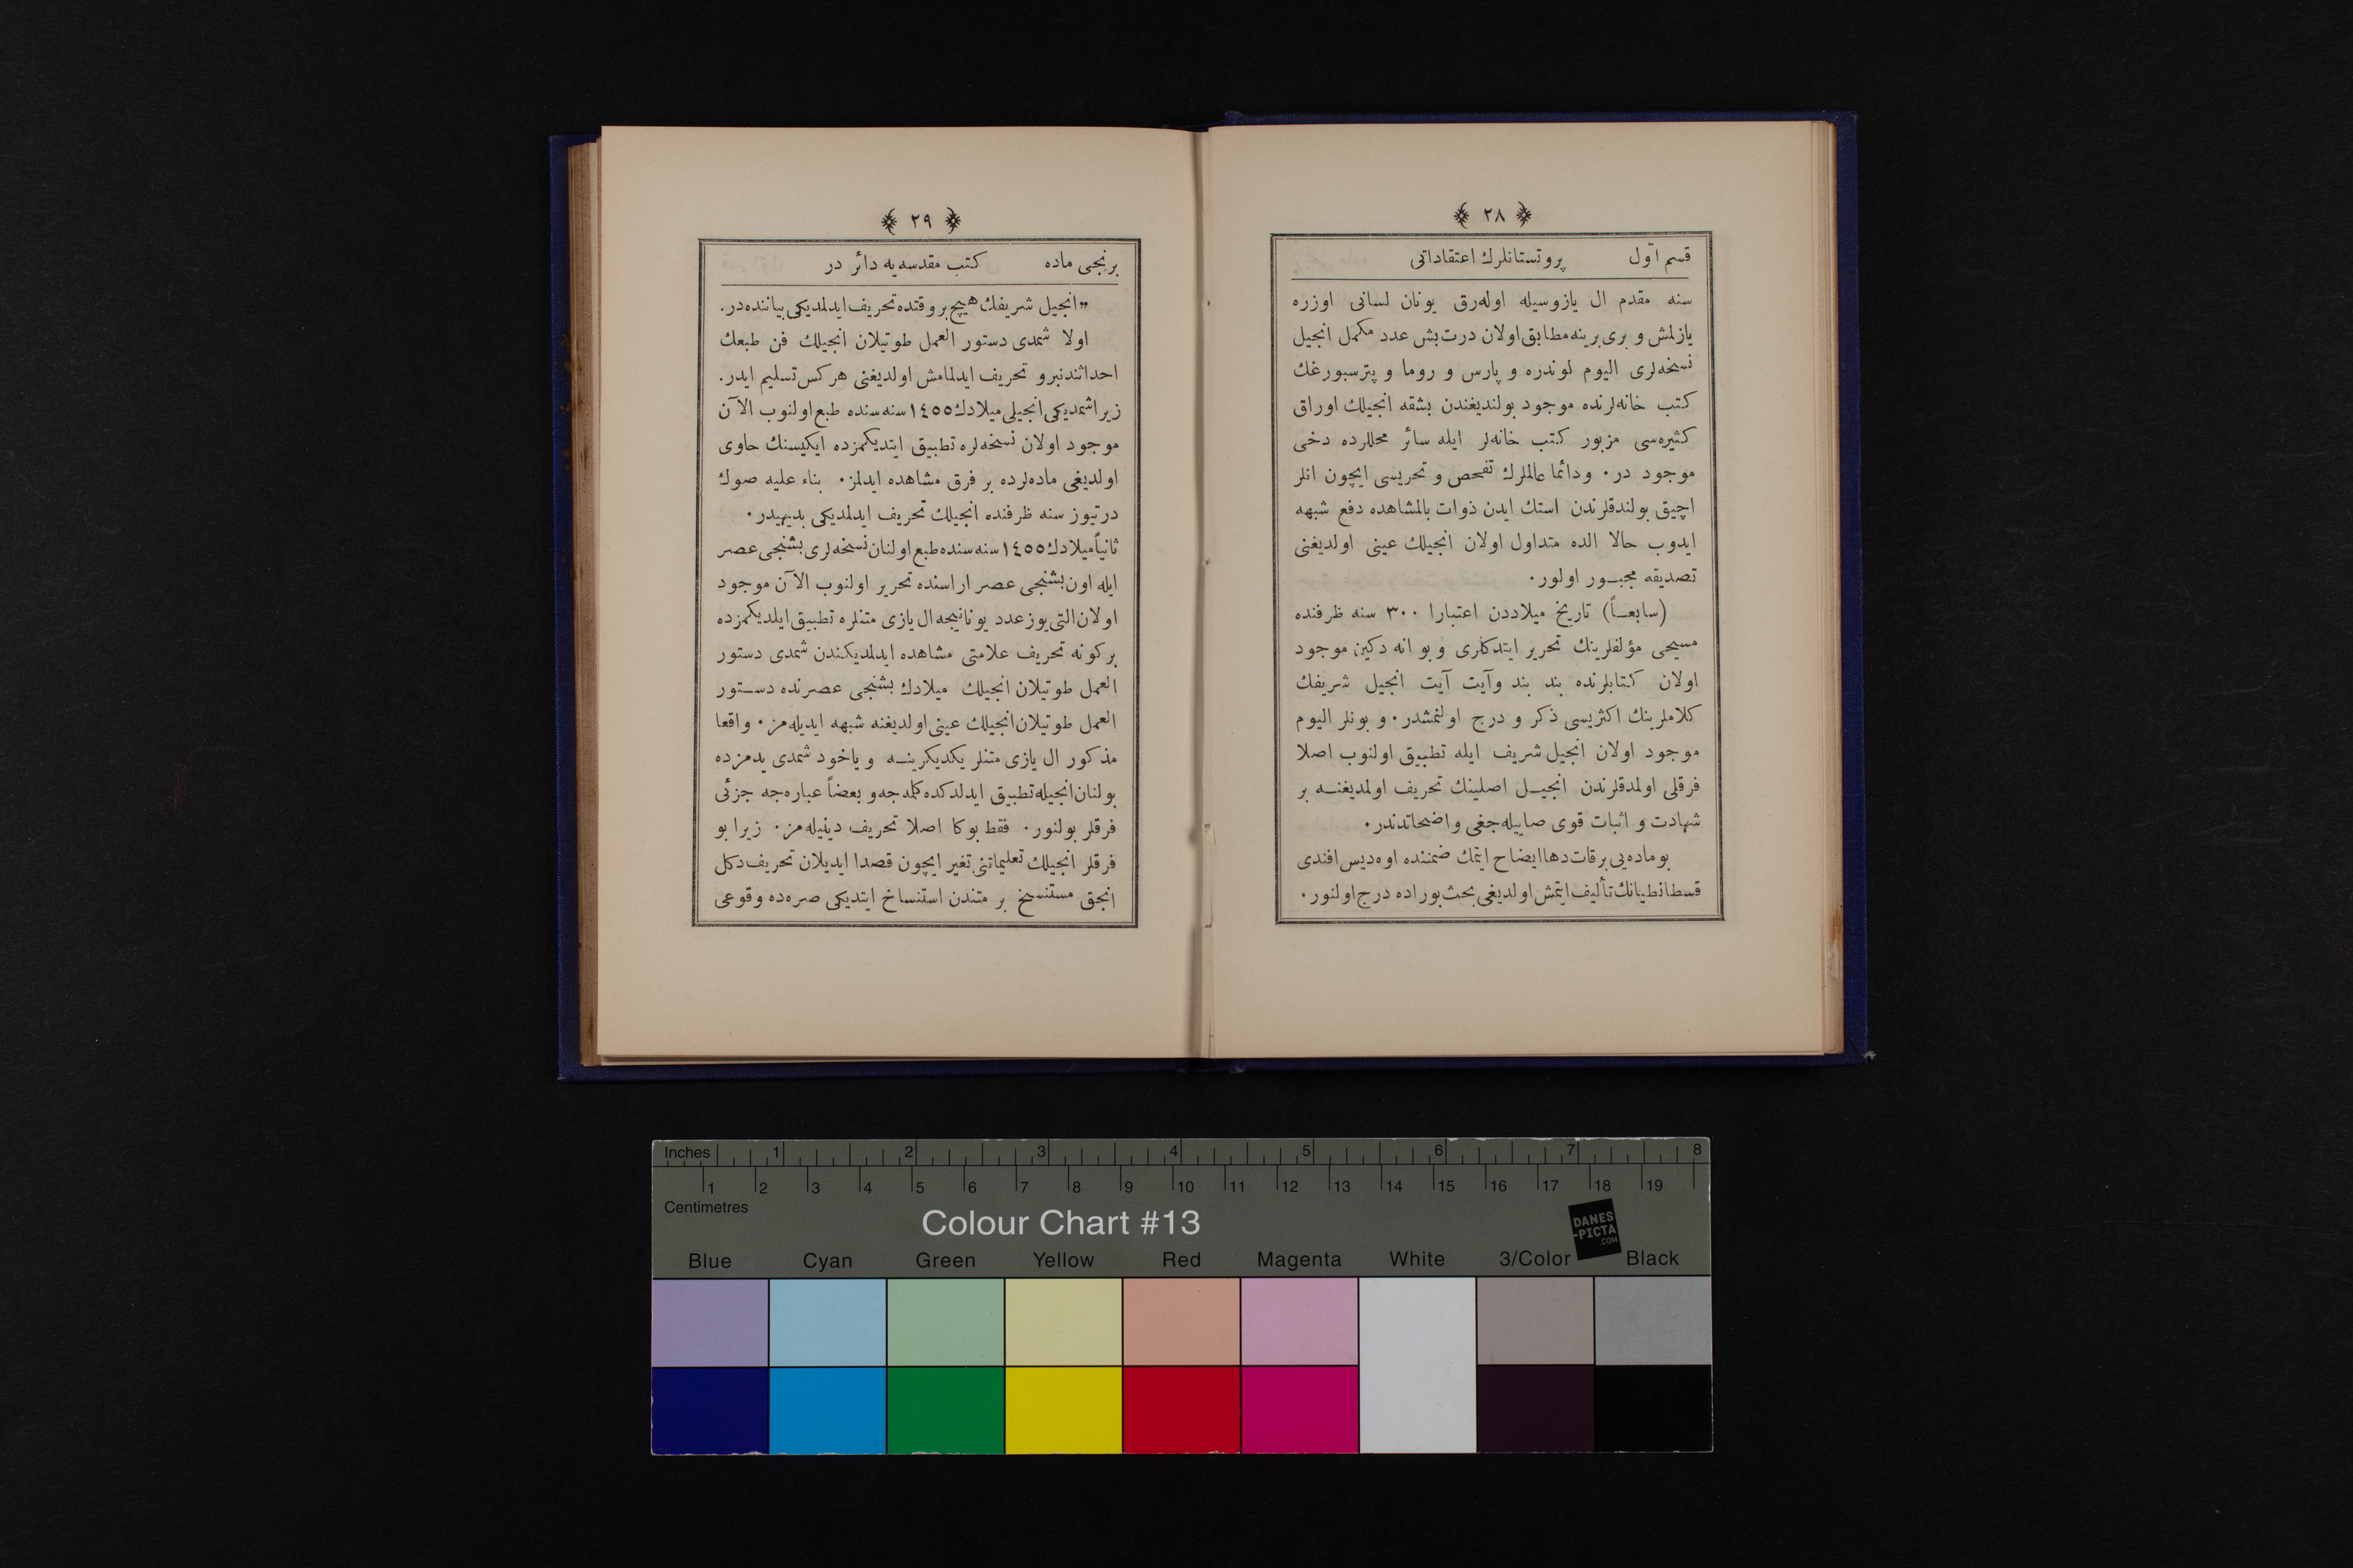 ﴿ ٢٨ ﴾
قسم اوّل پروتستانلرك اعتقاداتی
سنه مقدم ال یازوسیله اوله‌رق یونان لسانی اوزره
یازلمش و بری برینه مطابق اولان درت بش عدد مكمل انجیل
نسخه‌لری الیوم لوندره و پارس و روما و پترسبورغك
كتب خانه‌لرنده موجود بولندیغندن بشقه انجیلك اوراق
كثیره‌سی مزبور كتب خانه‌لر ایله سائر محللرده دخی
موجود در. ودائما عالملرك تفحص و تحریسی ایچون انلر
اچیق بولندقلرندن استك ایدن ذوات بالمشاهده دفع شبهه
ایدوب حالا الده متداول اولان انجیلك عینی اولدیغنی
تصدیقه مجبور اولور.
(سابعاً) تاریخ میلاددن اعتبارا ٣٠٠ سنه ظرفنده
مسیحی مؤلفلرینك تحریر ایتدكلری و بو انه دكین موجود
اولان كتابلرنده بند بند وآیت آیت انجیل شریفك
كلاملرینك اكثریسی ذكر و درج اولنمشدر. و بونلر الیوم
موجود اولان انجیل شریف ایله تطبیق اولنوب اصلا
فرقلی اولمدقلرندن انجیل اصلینك تحریف اولمدیغنه بر
شهادت و اثبات قوی صاییله‌جغی واضحاتدندر.
بوماده‌یی برقات دها ایضاح ایتمك ضمننده اوه‌دیس افندی
قسطانطیانك تألیف ایتمش اولدیغی بحث بوراده درج اولنور.
﴿ ٢٩ ﴾
برنجی ماده كتب مقدسه‌یه دائر در
„انجیل شریفك هیچ بر وقتده تحریف ایدلمدیكی بیاننده‌در.
اولا شمدی دستور العمل طوتیلان انجیلك فن طبعك
احداثندنبرو تحریف ایدلمامش اولدیغنی هركس تسلیم ایدر.
زیرا شمدیكی انجیلی میلادك ١٤٥٥ سنه سنده طبع اولنوب الآن
موجود اولان نسخه‌لره تطبیق ایتدیكمزده ایكیسنك حاوی
اولدیغی ماده‌لرده بر فرق مشاهده ایدلمز. بناء علیه صوك
درتیوز سنه ظرفنده انجیلك تحریف ایدلمدیكی بدیهیدر.
ثانیاً میلادك ١٤٥٥ سنه سنده طبع اولنان نسخه‌لری بشنجی عصر
ایله اون بشنجی عصر اراسنده تحریر اولنوب الآن موجود
اولان التی یوز عدد یونانیجه ال یازی متنلره تطبیق ایلدیكمزده
بركونه تحریف علامتی مشاهده ایدلمدیكندن شمدی دستور
العمل طوتیلان انجیلك میلادك بشنجی عصرنده دستور
العمل طوتیلان انجیلك عینی اولدیغنه شبهه ایدیله‌مز. واقعا
مذكور ال یازی متنلر یكدیكرینه و یاخود شمدی یدمزده
بولنان انجیله تطبیق ایدلدكده كلمه‌جه و بعضاً عباره‌جه جزئی
فرقلر بولنور. فقط بوكا اصلا تحریف دینیله‌مز. زیرا بو
فرقلر انجیلك تعلیماتنی تغیر ایچون قصدا ایدیلان تحریف دكل
انجق مستنسخ بر متندن استنساخ ایتدیكی صره‌ده وقوعی
Inches 1 2 3 4 5 6 7 8
1 2 3 4 5 6 7 8 9 10 11 12 13 14 15 16 17 18 19
Centimetres
Colour Chart #13
DANES
-PICTA
.COM
Blue Cyan Green Yellow Red Magenta White 3/Color Black